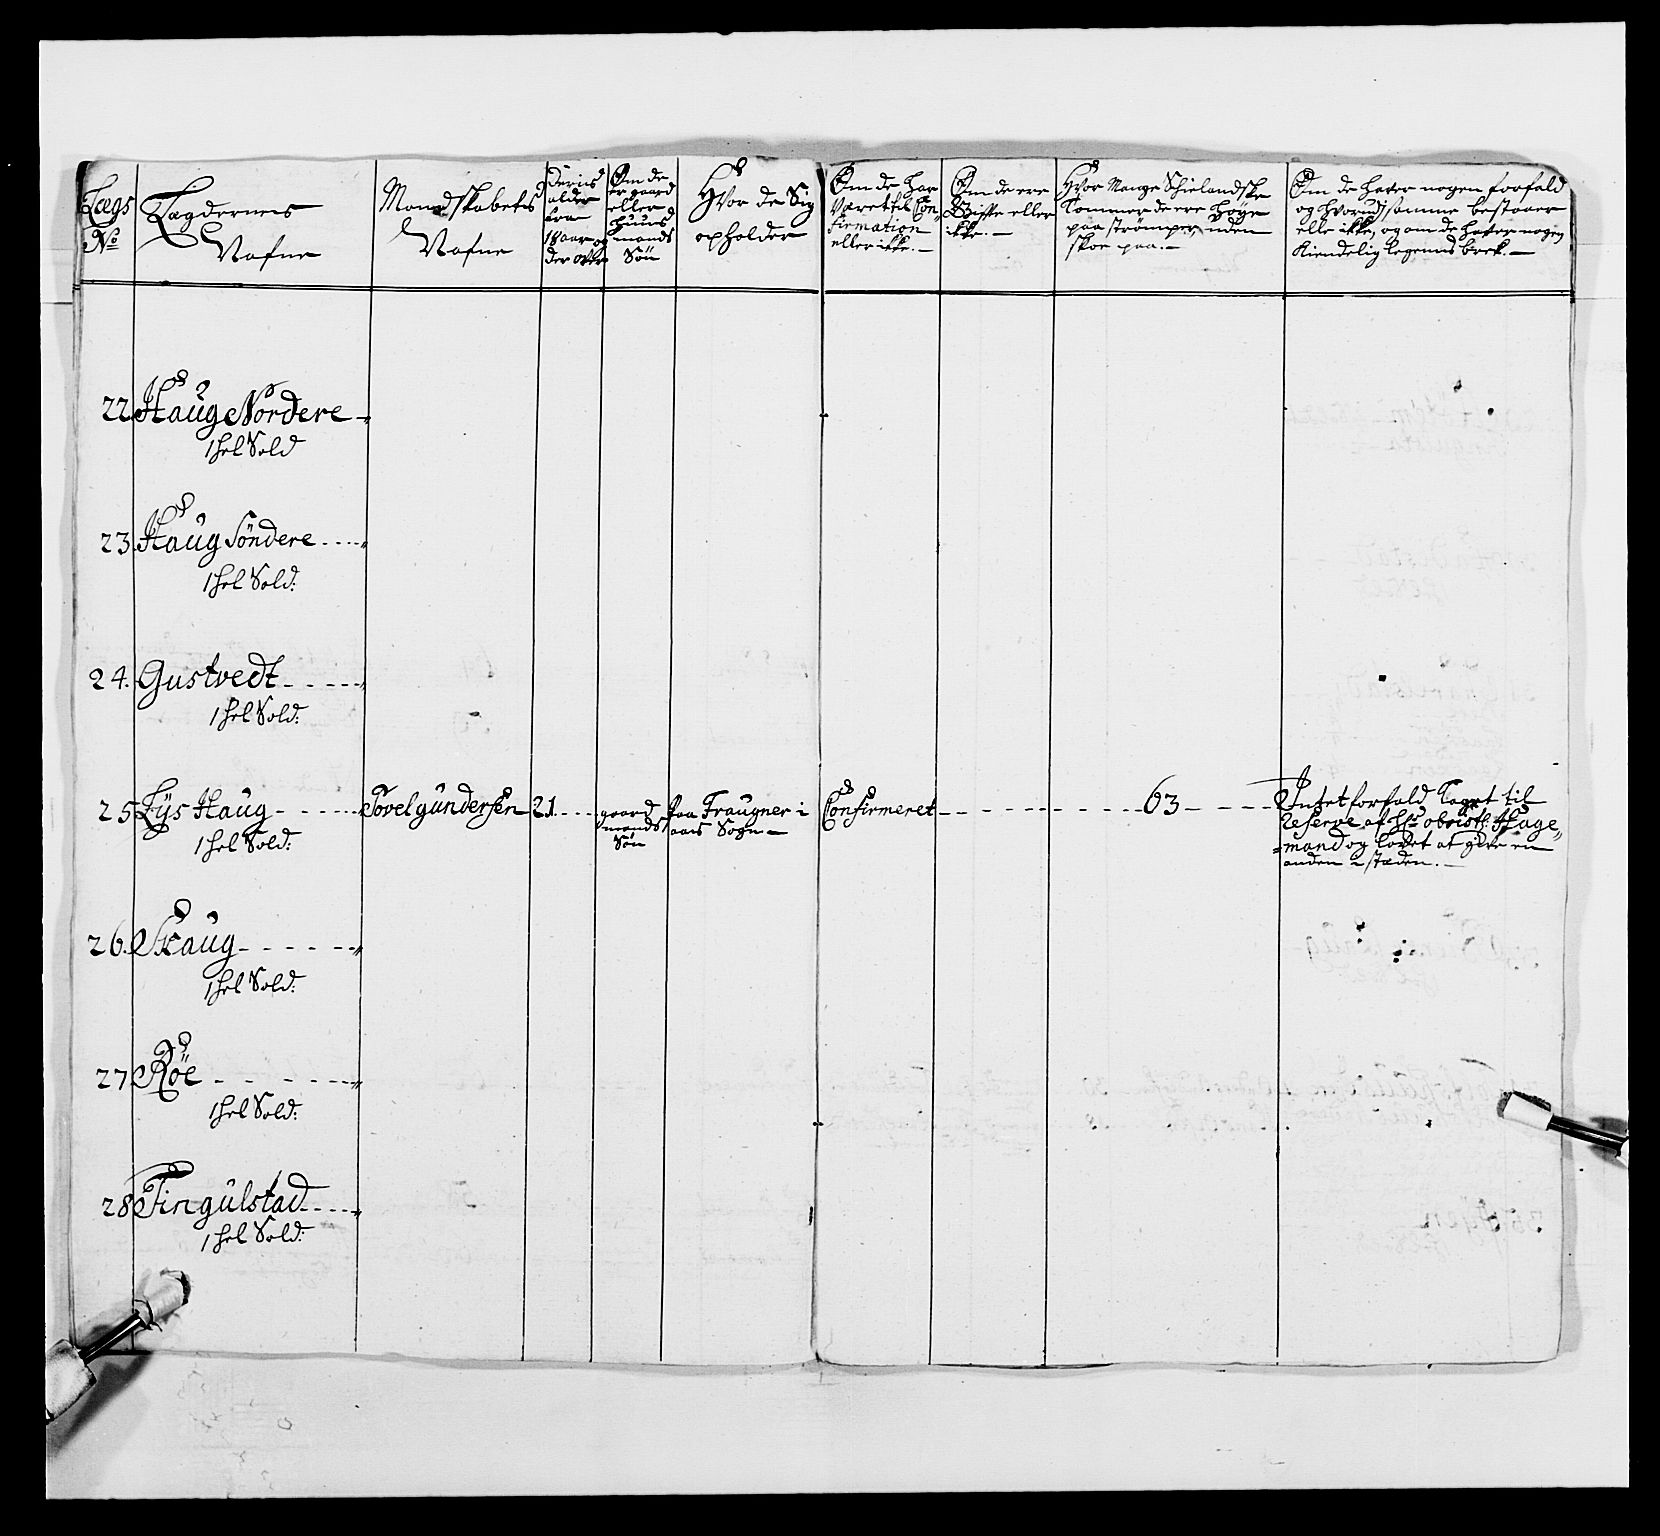 Lægs
No
Lægdernes
Nafne
Mandskabets
Nafne
deris
alder
fra
18 aar og
der over
Om de
er gaard
eller
huus
mands
Søn
Hvor de Sig
opholder
Om de har
været til Con
firmation
eller ikke.
Om de ere
Giifte eller
ikke.
Hvor Mange Schielandske
Tommer de ere høye
paa strømper, uden
skoe paa.
Om de haver nogen forfald
og hvorudj samme bestaaer
elle ikke, og om de haver nogen
Kiendelig legems breck.
22. Haug Nordere
1 hel Sold
23. Haug Søndere
1 hel Sold:
24. Gustvedt
1 hel Sold:
25 Lys Haug Povel gundersen 21 gaard mands Søn Paa Fraugner i aas Sogn Confirmeret 63 Intet forfald taget til
1 hel Sold:
Reserve af Hr obristl: Hage=
mand og lovet at give en
anden i stæden.
26. Skaug
1 hel Sold:
27. Røe
1 hel Sold:
28 Tingulstad
1 hel Sold: